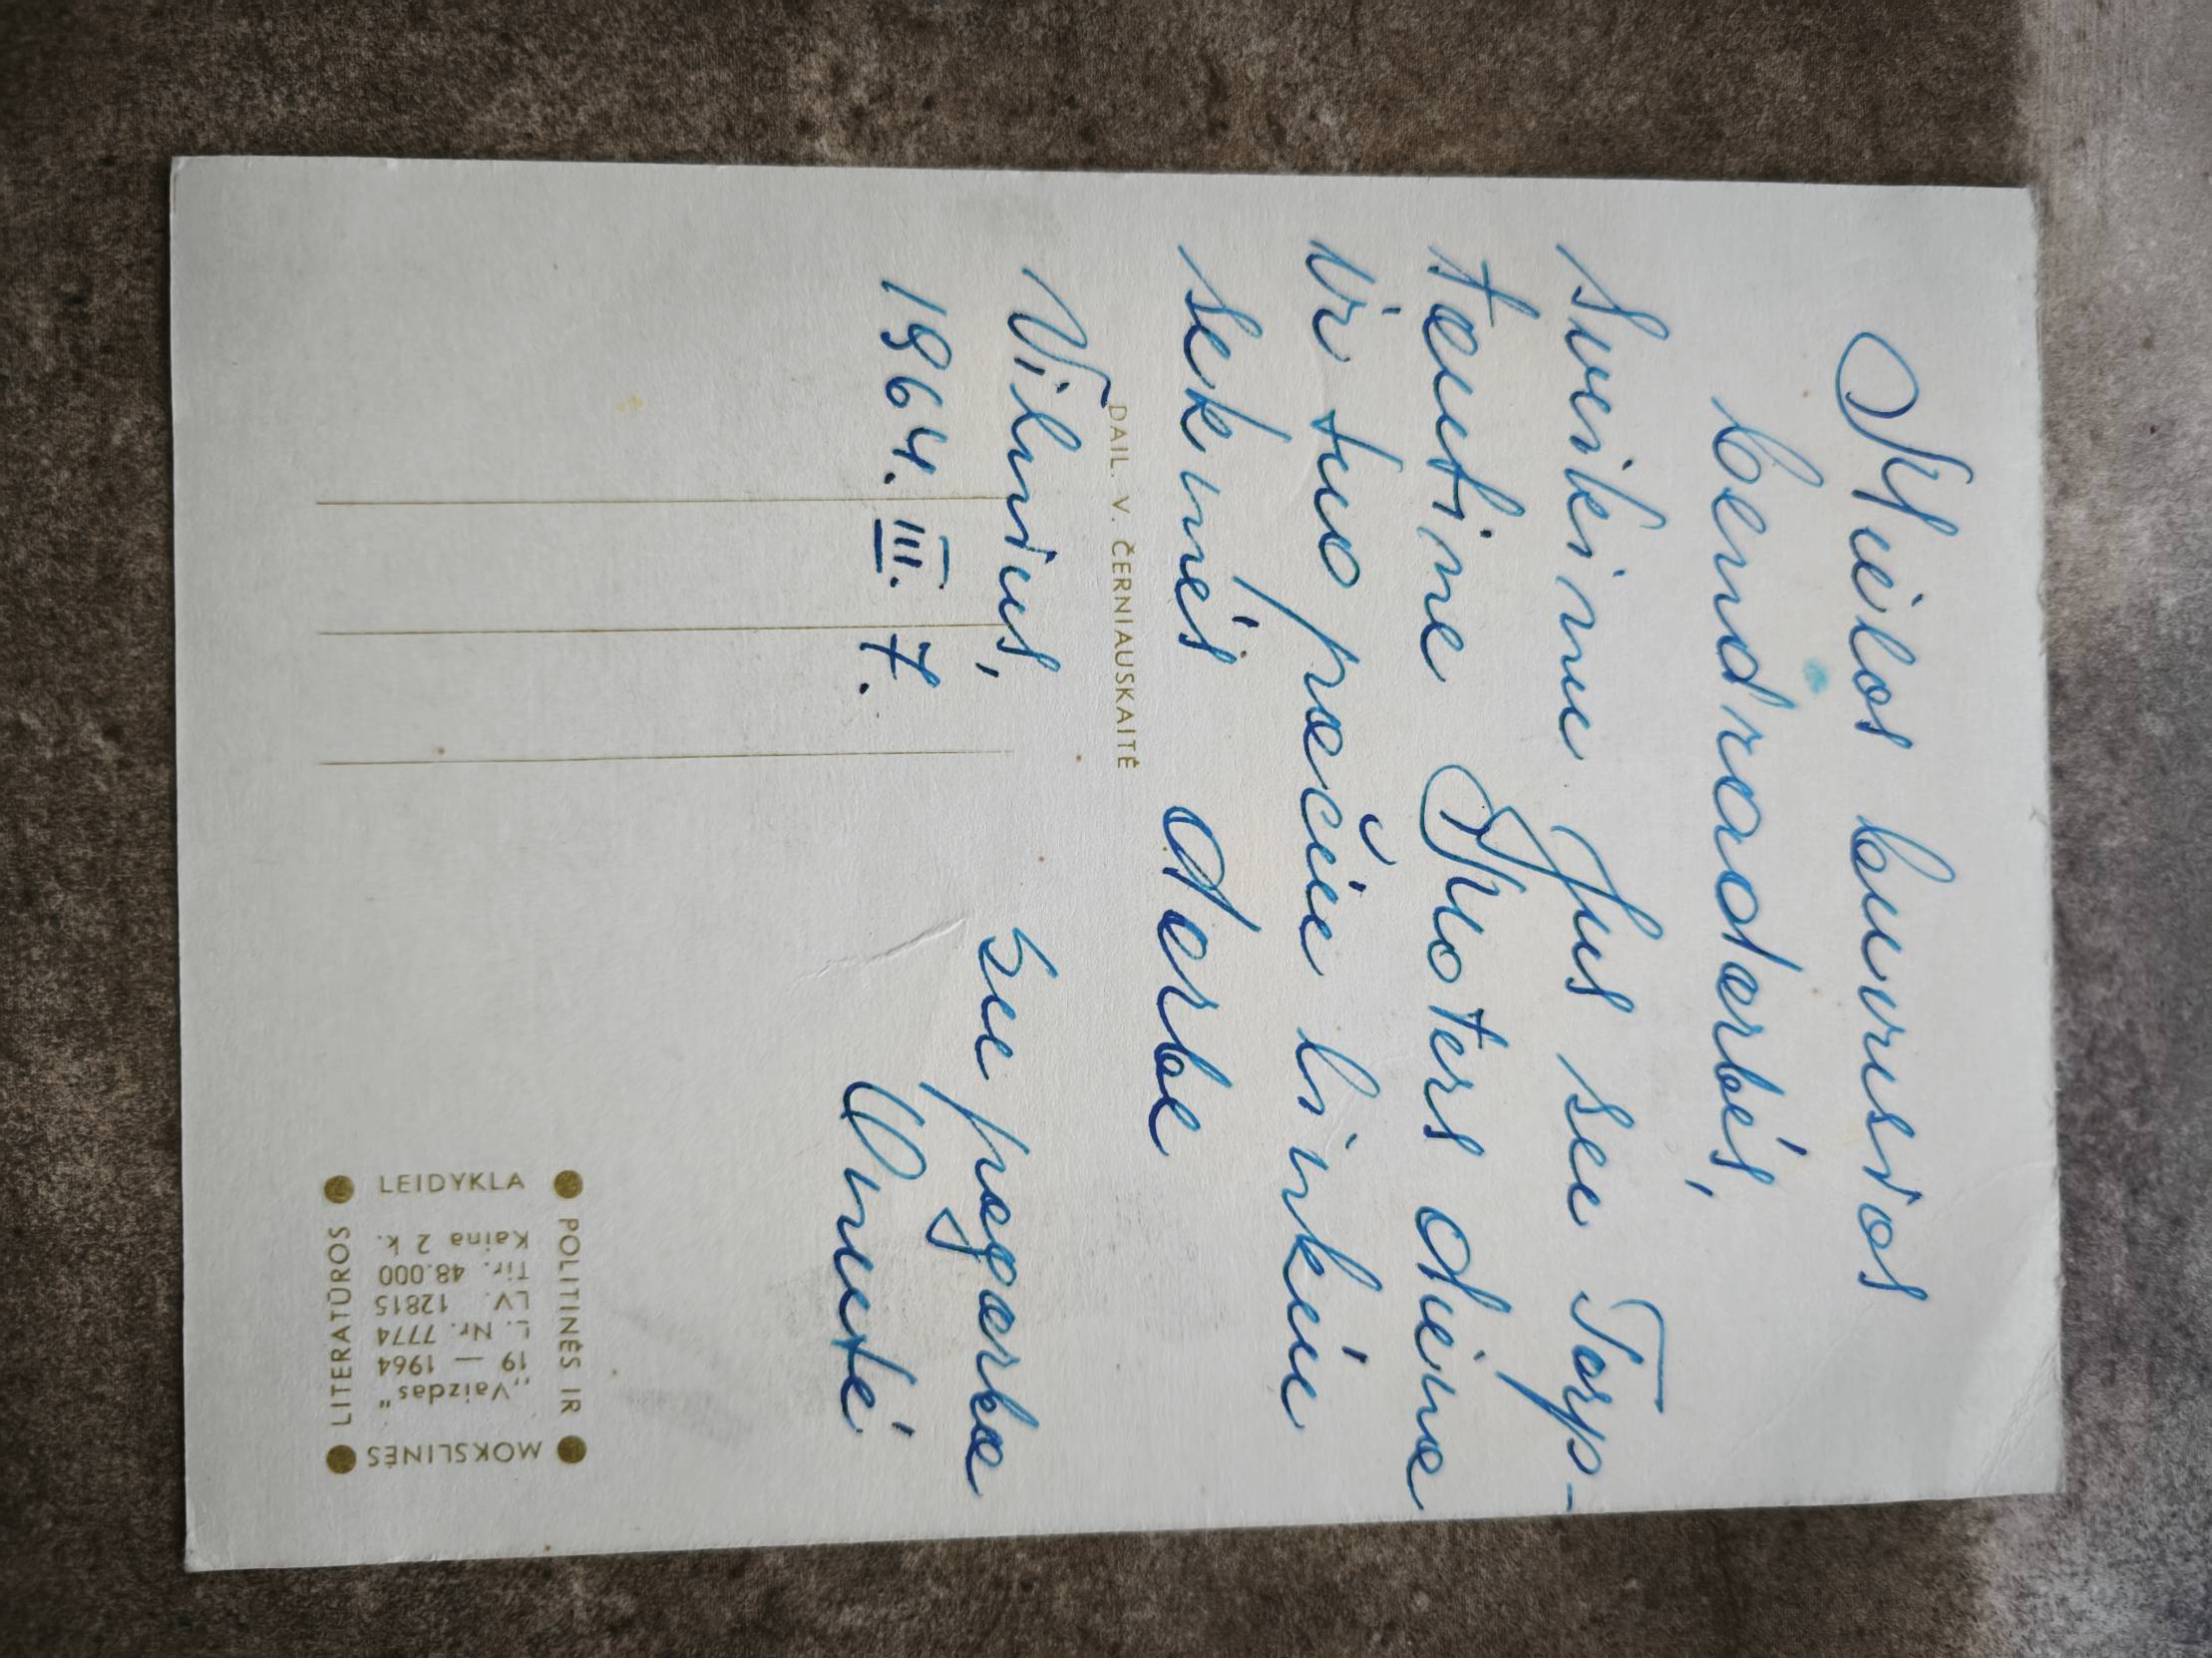 Mielos buvusios
bendradarbės,
Sveikinu Jus su Tarp-
tautine Moters diena
ir tuo pačiu linkiu
sėkmės darbe
Vilnius,
su pagarba
1964.III.7.
Onutė
DAIL. V. ČERNIAUSKAITĖ
LEIDYKLA
POLITINĖS IR
MOKSLINĖS
LITERATŪROS
„Vaizdas"
19 — 1964
L. Nr. 7774
LV. 12815
Tir. 48.000
Kaina 2 k.